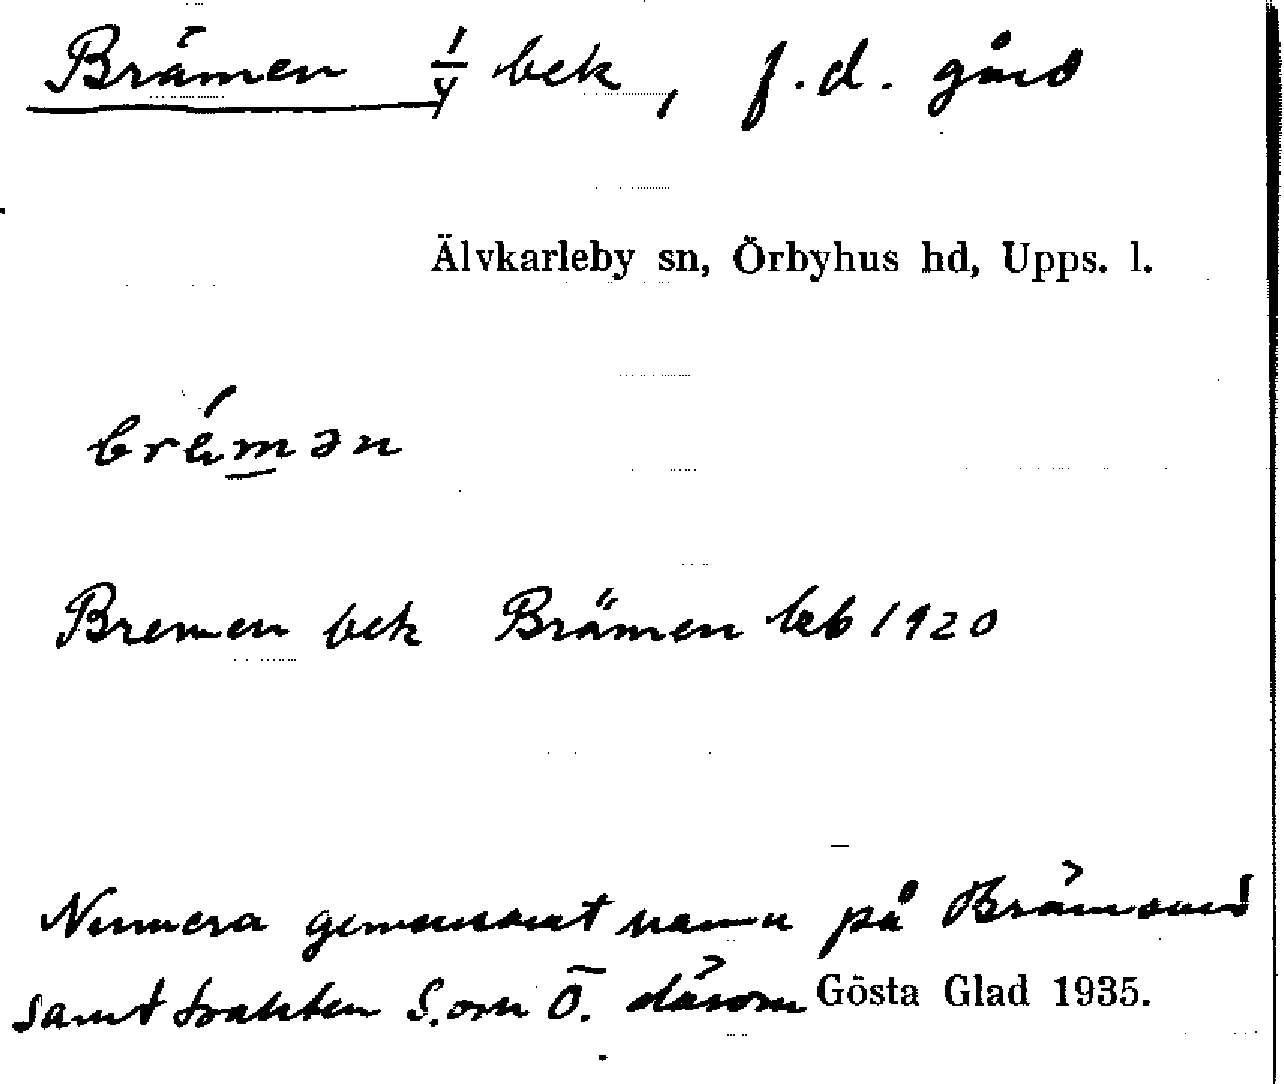 Brämen 1/4 bek, f.d. gård
Älvkarleby sn, Örbyhus hd, Upps. l.
brémən
Bremen bek Brämen leb 1920
Numera gemensamt namn på Brämsand
samt trakten S. om Ö. därom Gösta Glad 1935.